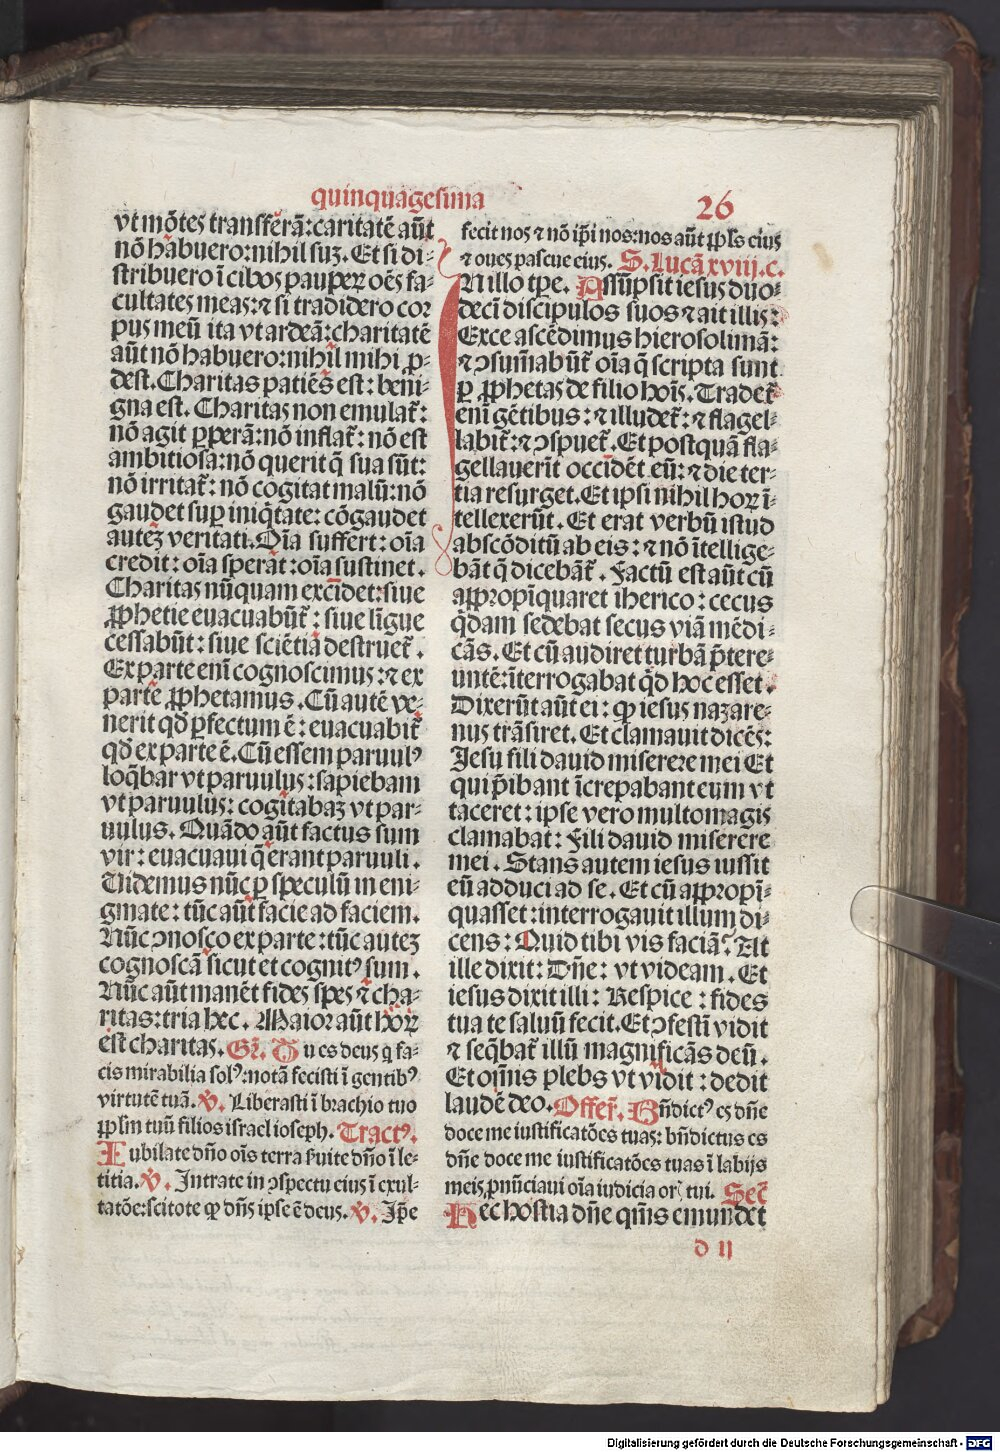 quinquagesima
26
vt mõtes transferã: caritatẽ aũt
nõ habuero: nihil suꝫ. Et si di⸗
stribuero ĩ cibos pauperꝝ oẽs fa⸗
cultates meas: ⁊ si tradidero cor
pus meũ ita vt ardeã: charitatẽ
aũt nõ habuero: nihil mihi ꝓ⸗
dest. Charitas patiẽs est: beni⸗
gna est. Charitas non emulat᷑:
nõ agit ꝑperã: nõ inflat᷑: nõ est
ambitiosa: nõ querit q̃ sua sũt:
nõ irritat᷑: nõ cogitat malũ: nõ
gaudet suꝑ iniq̃tate: cõgaudet
auteꝫ veritati. Oĩa suffert: oĩa
credit: oĩa sperat: oĩa sustinet.
Charitas nũquam excĩdet: siue
ꝓphetie euacuabũt᷑: siue lĩgue
cessabũt: siue sciẽtia destruet᷑.
Ex parte enĩ cognoscimus: ⁊ ex
parte ꝓphetamus. Cũ autẽ ve⸗
nerit qḋ ꝑfectum ẽ: euacuabit᷑
qḋ ex parte ẽ. Cũ essem paruulꝰ
loq̃bar vt paruulus: sapiebam
vt paruulus: cogitabaꝫ vt par⸗
uulus. Quãdo aũt factus sum
vir: euacuaui q̃ erant paruuli.
Videmus nũc ꝑ speculũ in eni⸗
gmate: tũc aũt facie ad faciem.
Nũc ↄnosco ex parte: tũc auteꝫ
cognoscã sicut et cognitꝰ sum.
Nũc aũt manẽt fides spes ⁊ cha⸗
ritas: tria hec. Maior aũt horꝝ
est charitas. Gr̃. Tu es deus q̃ fa⸗
cis mirabilia solꝰ: notã fecisti ĩ gentibꝰ
virtutẽ tuã. ℣. Liberasti ĩ brachio tuo
pp̃lm tuũ filios israel ioseph. Tractꝰ.
Iubilate dño oĩs terra ẜuite dño ĩ le⸗
titia. ℣. Intrate in ↄspectu eius ĩ exul⸗
tatõe: scitote ꝙ dñs ipse ẽ deus. ℣. Ip̃e
fecit nos ⁊ nõ ip̃i nos: nos aũt pp̃ls eius
⁊ oues pascue eius. S. Lucã xviij. c.
IN illo tp̃e. Assũpsit iesus duo⸗
decĩ discipulos suos ⁊ ait illis:
Ecce ascẽdimus hierosolimã:
⁊ ↄsum̃abũt᷑ oĩa q̃ scripta sunt
ꝑ ꝓphetas de filio hoĩs. Tradet᷑
enĩ gẽtibus: ⁊ illudet᷑: ⁊ flagel⸗
labit᷑: ⁊ ↄspuet᷑. Et postquã fla⸗
gellauerĩt occidẽt eũ: ⁊ die ter⸗
tia resurget. Et ipsi nihil horꝝ ĩ⸗
tellexerũt. Et erat verbũ istud
abscõditũ ab eis: ⁊ nõ ĩtellige⸗
bãt q̃ dicebãt᷑. Factũ est aũt cũ
appropĩquaret iherico: cecus
q̃dam sedebat secus viã mẽdi⸗
cãs. Et cũ audiret turbã p̃tere⸗
untẽ: ĩterrogabat qḋ hoc esset.
Dixerũt aũt ei: ꝙ iesus nazare⸗
nus trãsiret. Et clamauit dicẽs:
Jesu fili dauid miserere mei Et
qui p̃ibant ĩcrepabant eum vt
taceret: ipse vero multomagis
clamabat: Fili dauid miserere
mei. Stans autem iesus iussit
eũ adduci ad se. Et cũ appropĩ⸗
quasset: interrogauit illum di⸗
cens: Quid tibi vis faciã? At
ille dixit: Dñe: vt videam. Et
iesus dixit illi: Respice: fides
tua te saluũ fecit. Et ↄfestĩ vidit
⁊ seq̃bat᷑ illũ magnificãs deũ.
Et om̃is plebs vt vidit: dedit
laudẽ deo. Offer̃. Bñdictꝰ es dñe
doce me iustificatões tuas: bñdictus es
dñe doce me iustificatões tuas ĩ labijs
meis ꝓnũciaui oĩa iudicia oris tui. Sec̃
Hec hostia dñe qm̃s emundet
d ij
Digitalisierung gefördert durch die Deutsche Forschungsgemeinschaft - DFG